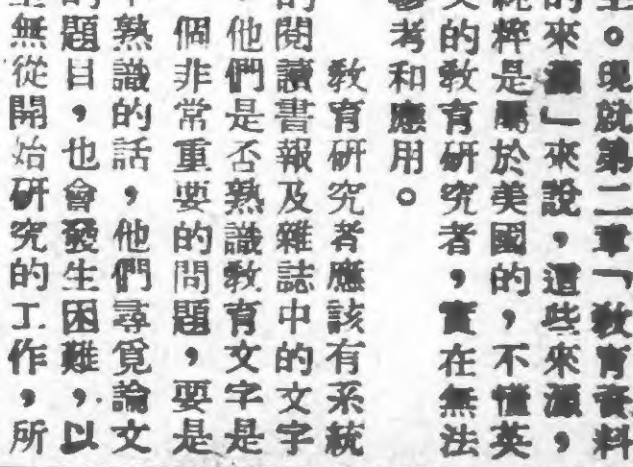 。現就第二章「教育資料
的來源」來說,這些來源,
純粹是屬於美國的,不懂英
文的教育研究者,實在無法
參考和應用。
教育研究者應該有系統
的閱讀書報及雜誌中的文字
,他們是否熟識教育文字是
個非常重要的問題,要是
熟識的話,他們尋覓論文
的題目,也會發生困難,以
無從開始研究的工作,所